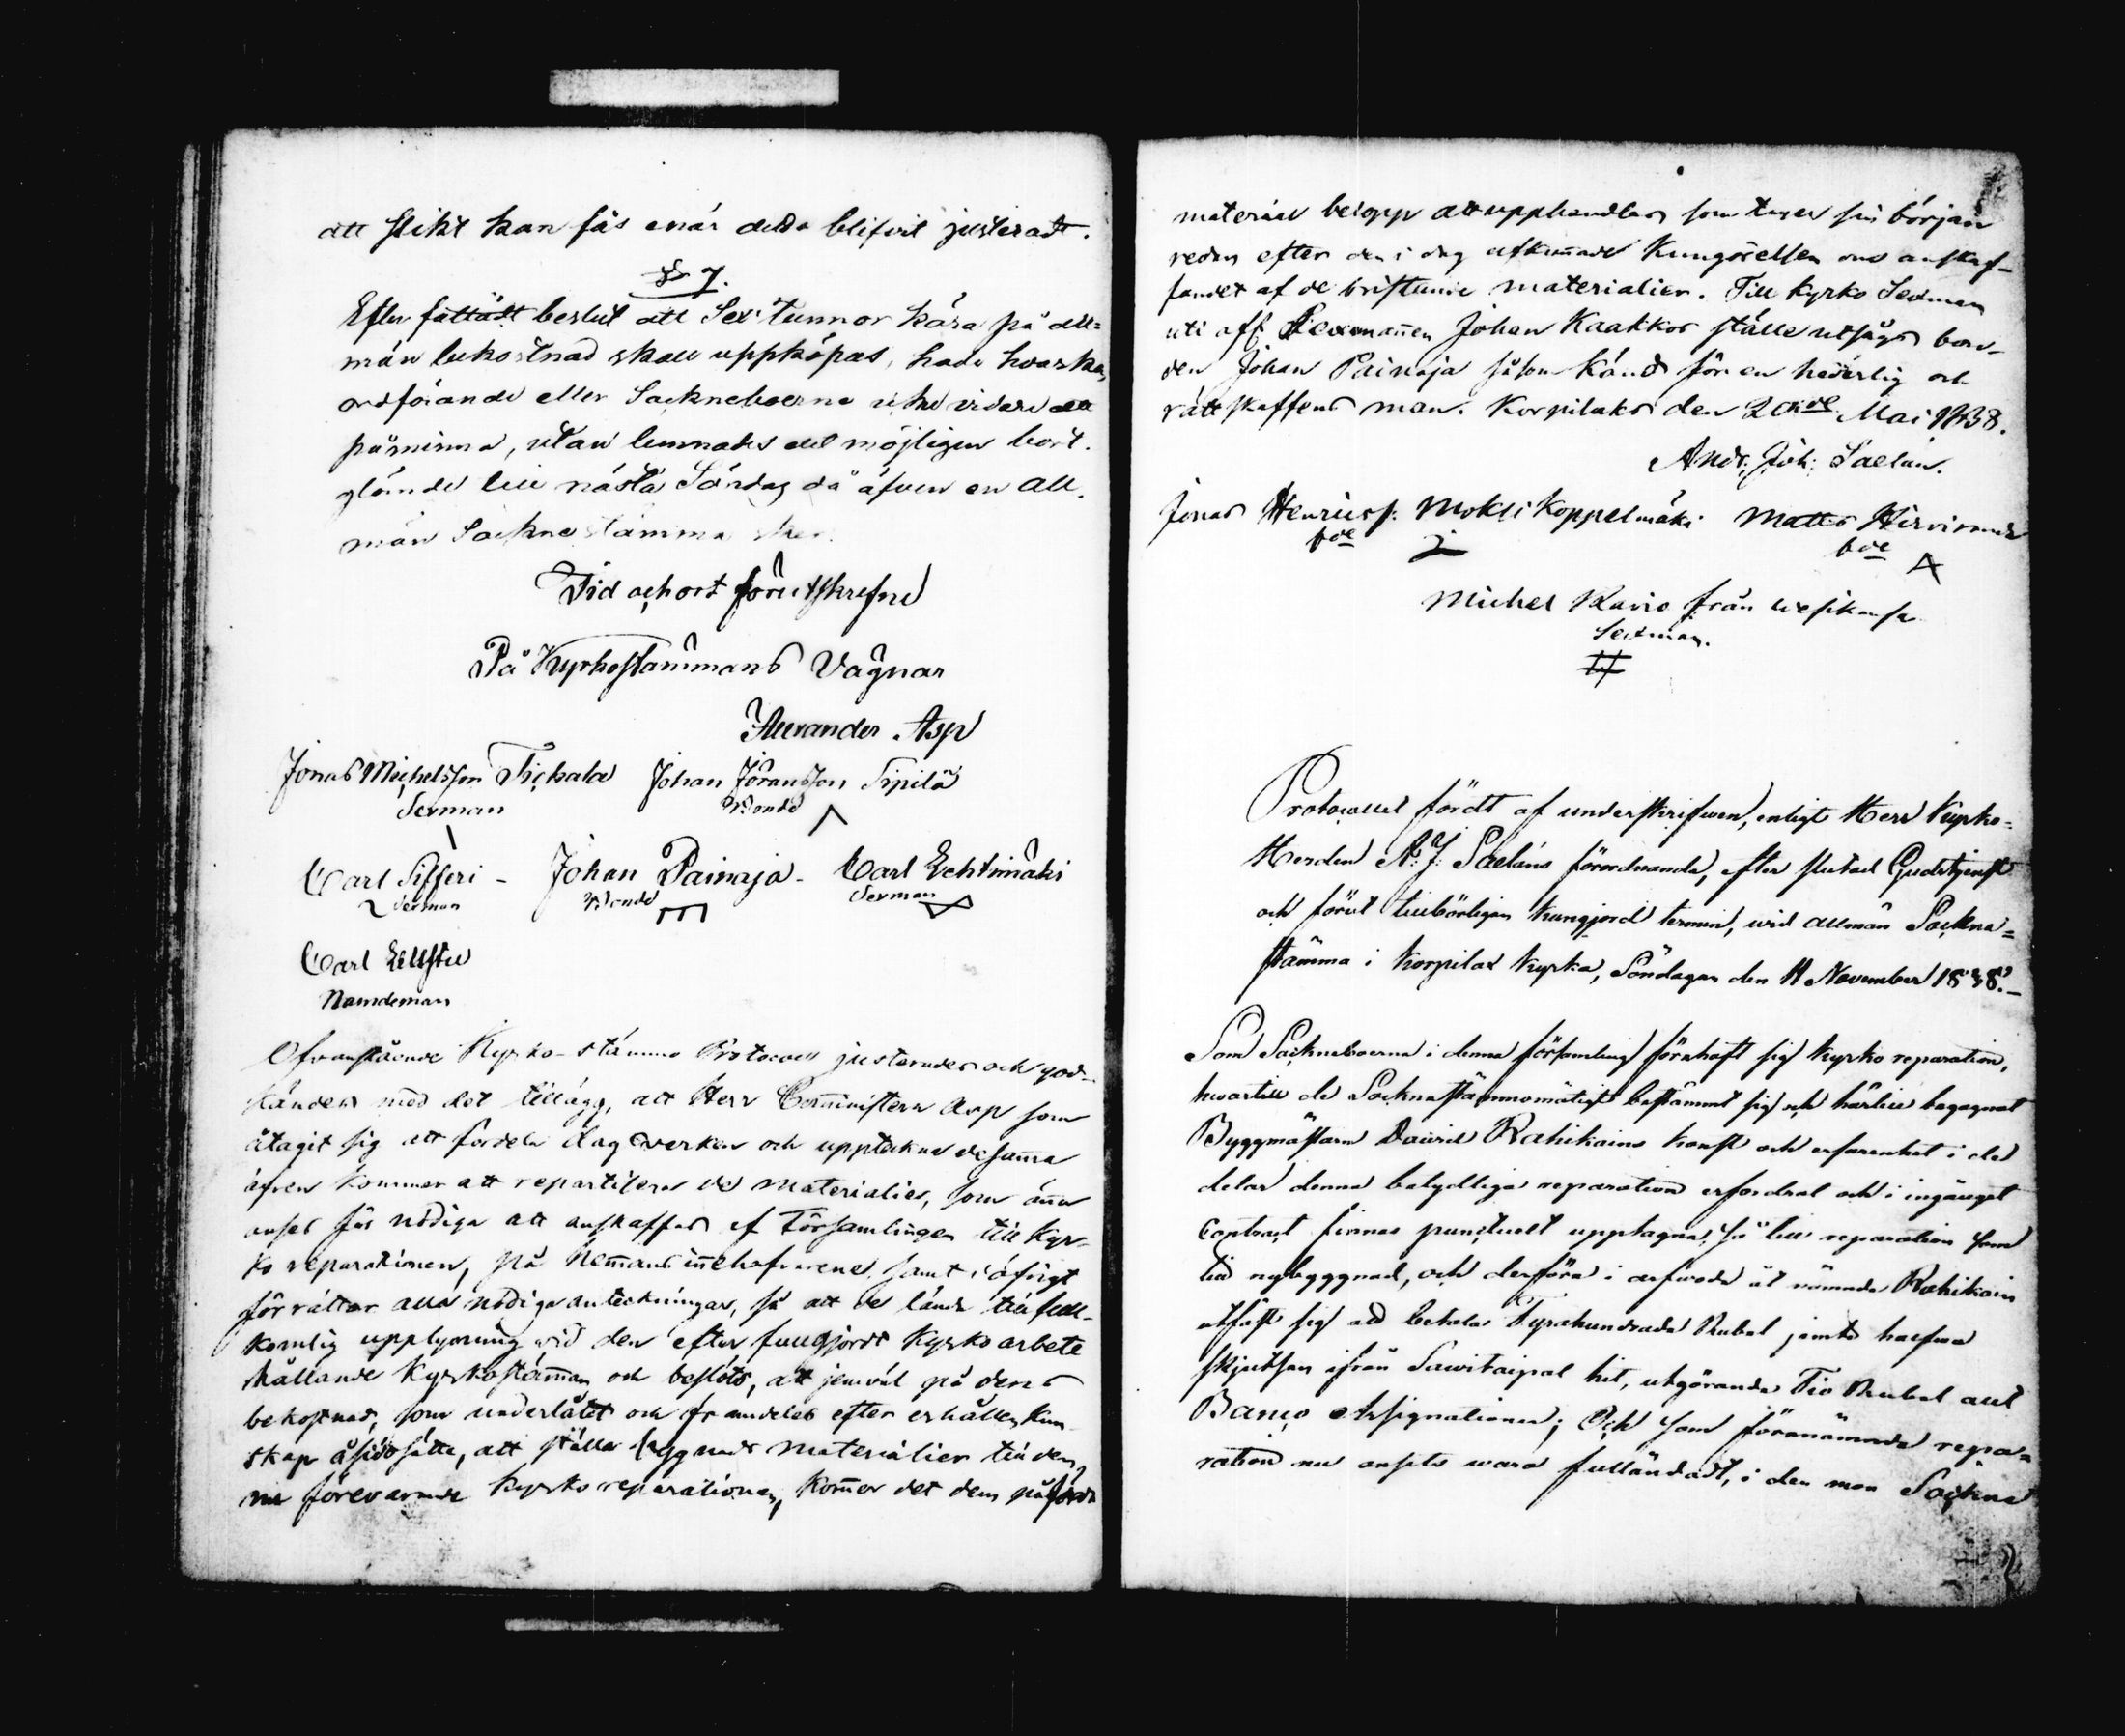 att slikt kan fås enär detta blifvit justeradt.
§ 7.
Efter fattadt beslut att Sex tunnor tjära på all=
män bekostnad skall uppköpas, hade hvarken
ordförande eller Sockneboerne icke vidare att
påminna, utan lemnades det möjligen bort-
glömde till nästa Söndag då äfven en All-
män Sockne stämma sker.
Tid och ort förutskrefne
På Kyrkostämmans Vägnar
Alexander Asp
Jonas Michelsson Tickala Johan Jöransson Sipilä
Sexman Bonde
Carl Sifferi - Johan Painaja - Carl Lehtimäki
Sexman Bonde Sexman
Carl
Nämdeman
Ofvanstående Kyrko-stämmo Protocoll justerades och god-
kändes med det tillägg, att Herr Comministern Asp som
åtagit sig att fördela dagsverken och uppteckna desamma
äfven kommer att repartisera de materialier, som ännu
anses för nödiga att anskaffas af Församlingen till Kyr-
ko reparationen, på Hemmans innehafvarene, samt i öfrigt
förrättar alla nödiga anteckningar, så att de lända till full-
komlig upplysning vid den efter fullgjordt Kyrko arbete
hållande Kyrkostämman och beslöts, att jemväl på deras
bekostnad, som underlåtit och framdeles efter erhållen kun-
skap åsidosätta, att ställa byggnads materialier till den
nu förevarande Kyrko reparationen, kommer det dem påförda
material belopp att upphandlas som tager sin början
redan efter den i dag afkunnade Kungörelsen om anskaf-
fandet af de bristande materialier. Till Kyrko Sexman
uti aff. Sexmannen Johan Kaakkos ställe utsågs bon-
den Johan Painaja såsom känd för en hederlig och
rättskaffens man. Korpilaks den 20de Mai 1838.
Andr: Joh: Saelan.
Jonas Henricss: Mokli Koppelmäki Matts Hirvi
bde bde
Michel Kavio från Wesikansa
Sexman.
Protocollet fördt af underskrifven, enligt Herr Kyrko=
Herden A: J: Saeláns förordnande, efter slutad Gudstjenst
och förut tillbörligen kungjord termin, wid allmän Sockne=
stämma i Korpilax Kyrka, Söndagen den 11 November 1838.-
Som Sockneboerna i denna församling förehaft sig Kyrko reparation,
hwartill de Socknestämmomätigt bestämmt sig och härtill begagnat
Byggmästarn David Rahikains konst och erfarenhet i de
delar denna betydliga reparation erfordrat och i ingånget
Contract finnas punctuelt upptagna, så till reparation som
till nybyggnad, och derföre i arfwode åt nämnde Rahikain
utfäst sig att betala Fyrahundrade Rubel jämte halfwa
skjutsen ifrån Sawitaipal hit, utgörande Tio Rubel allt
Banco Assignationer; Och som förenämnde repa=
ration nu ansets wara fulländadt, i den mon Sockne